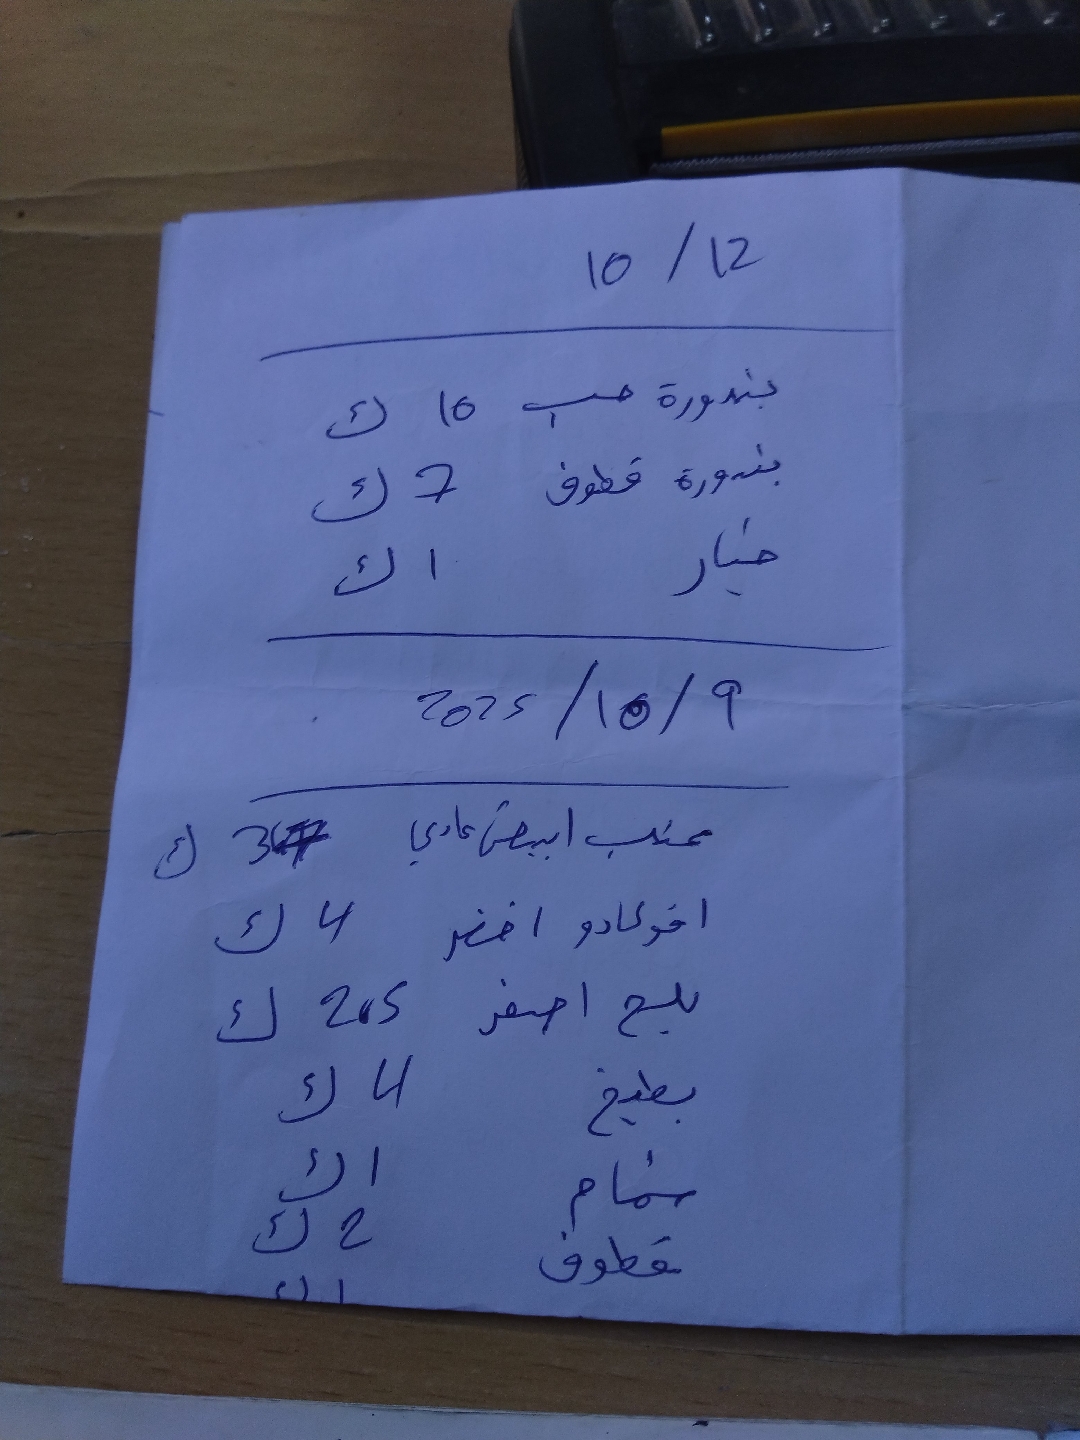 10 / 12
بندورة حب 10 ك
بندورة قطوف 7 ك
خيار 1 ك
2025 / 10 / 9
عنب ابيض عادي 3 ك
افوكادو اخضر 4 ك
بلح اصفر 2.5 ك
بطيخ 4 ك
شمام 1 ك
قطوف 2 ك
1 ك